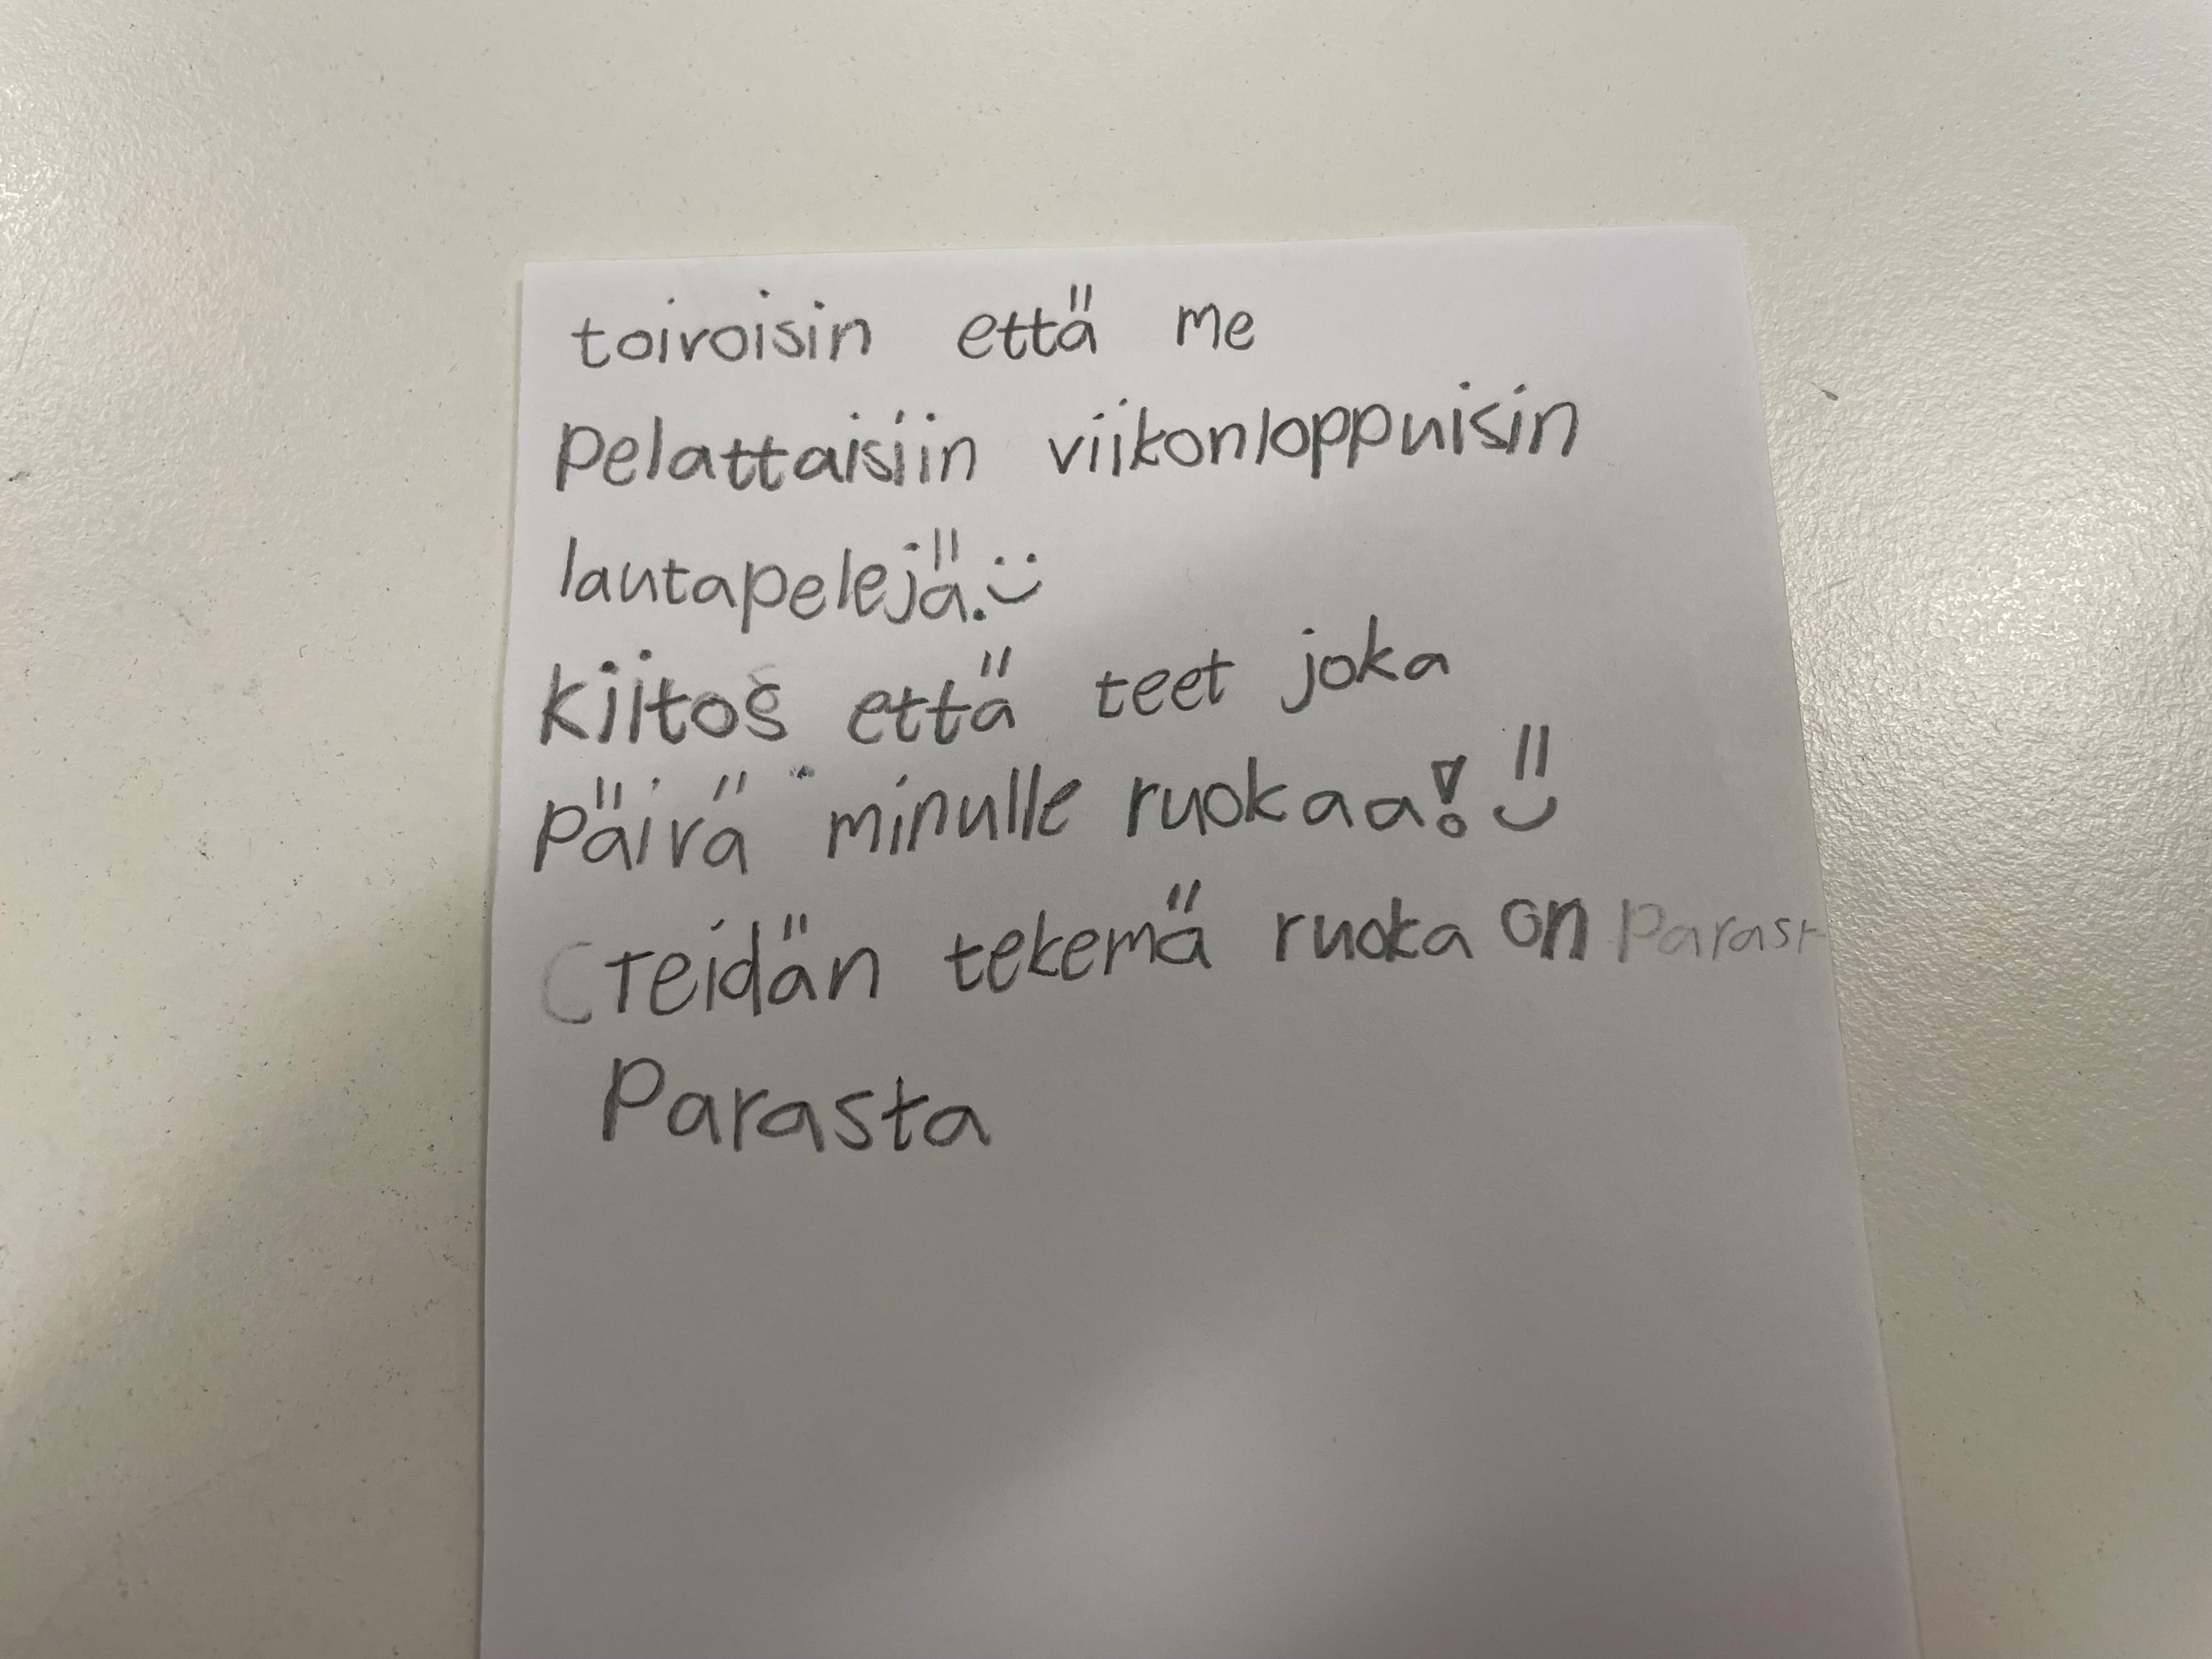 toivoisin että me
Pelattaisiin viikonloppuisin
lautapelejä. :)
kiitos että teet joka
Päivä minulle ruokaa! :)
(Teidän tekemä ruoka on Parast
Parasta